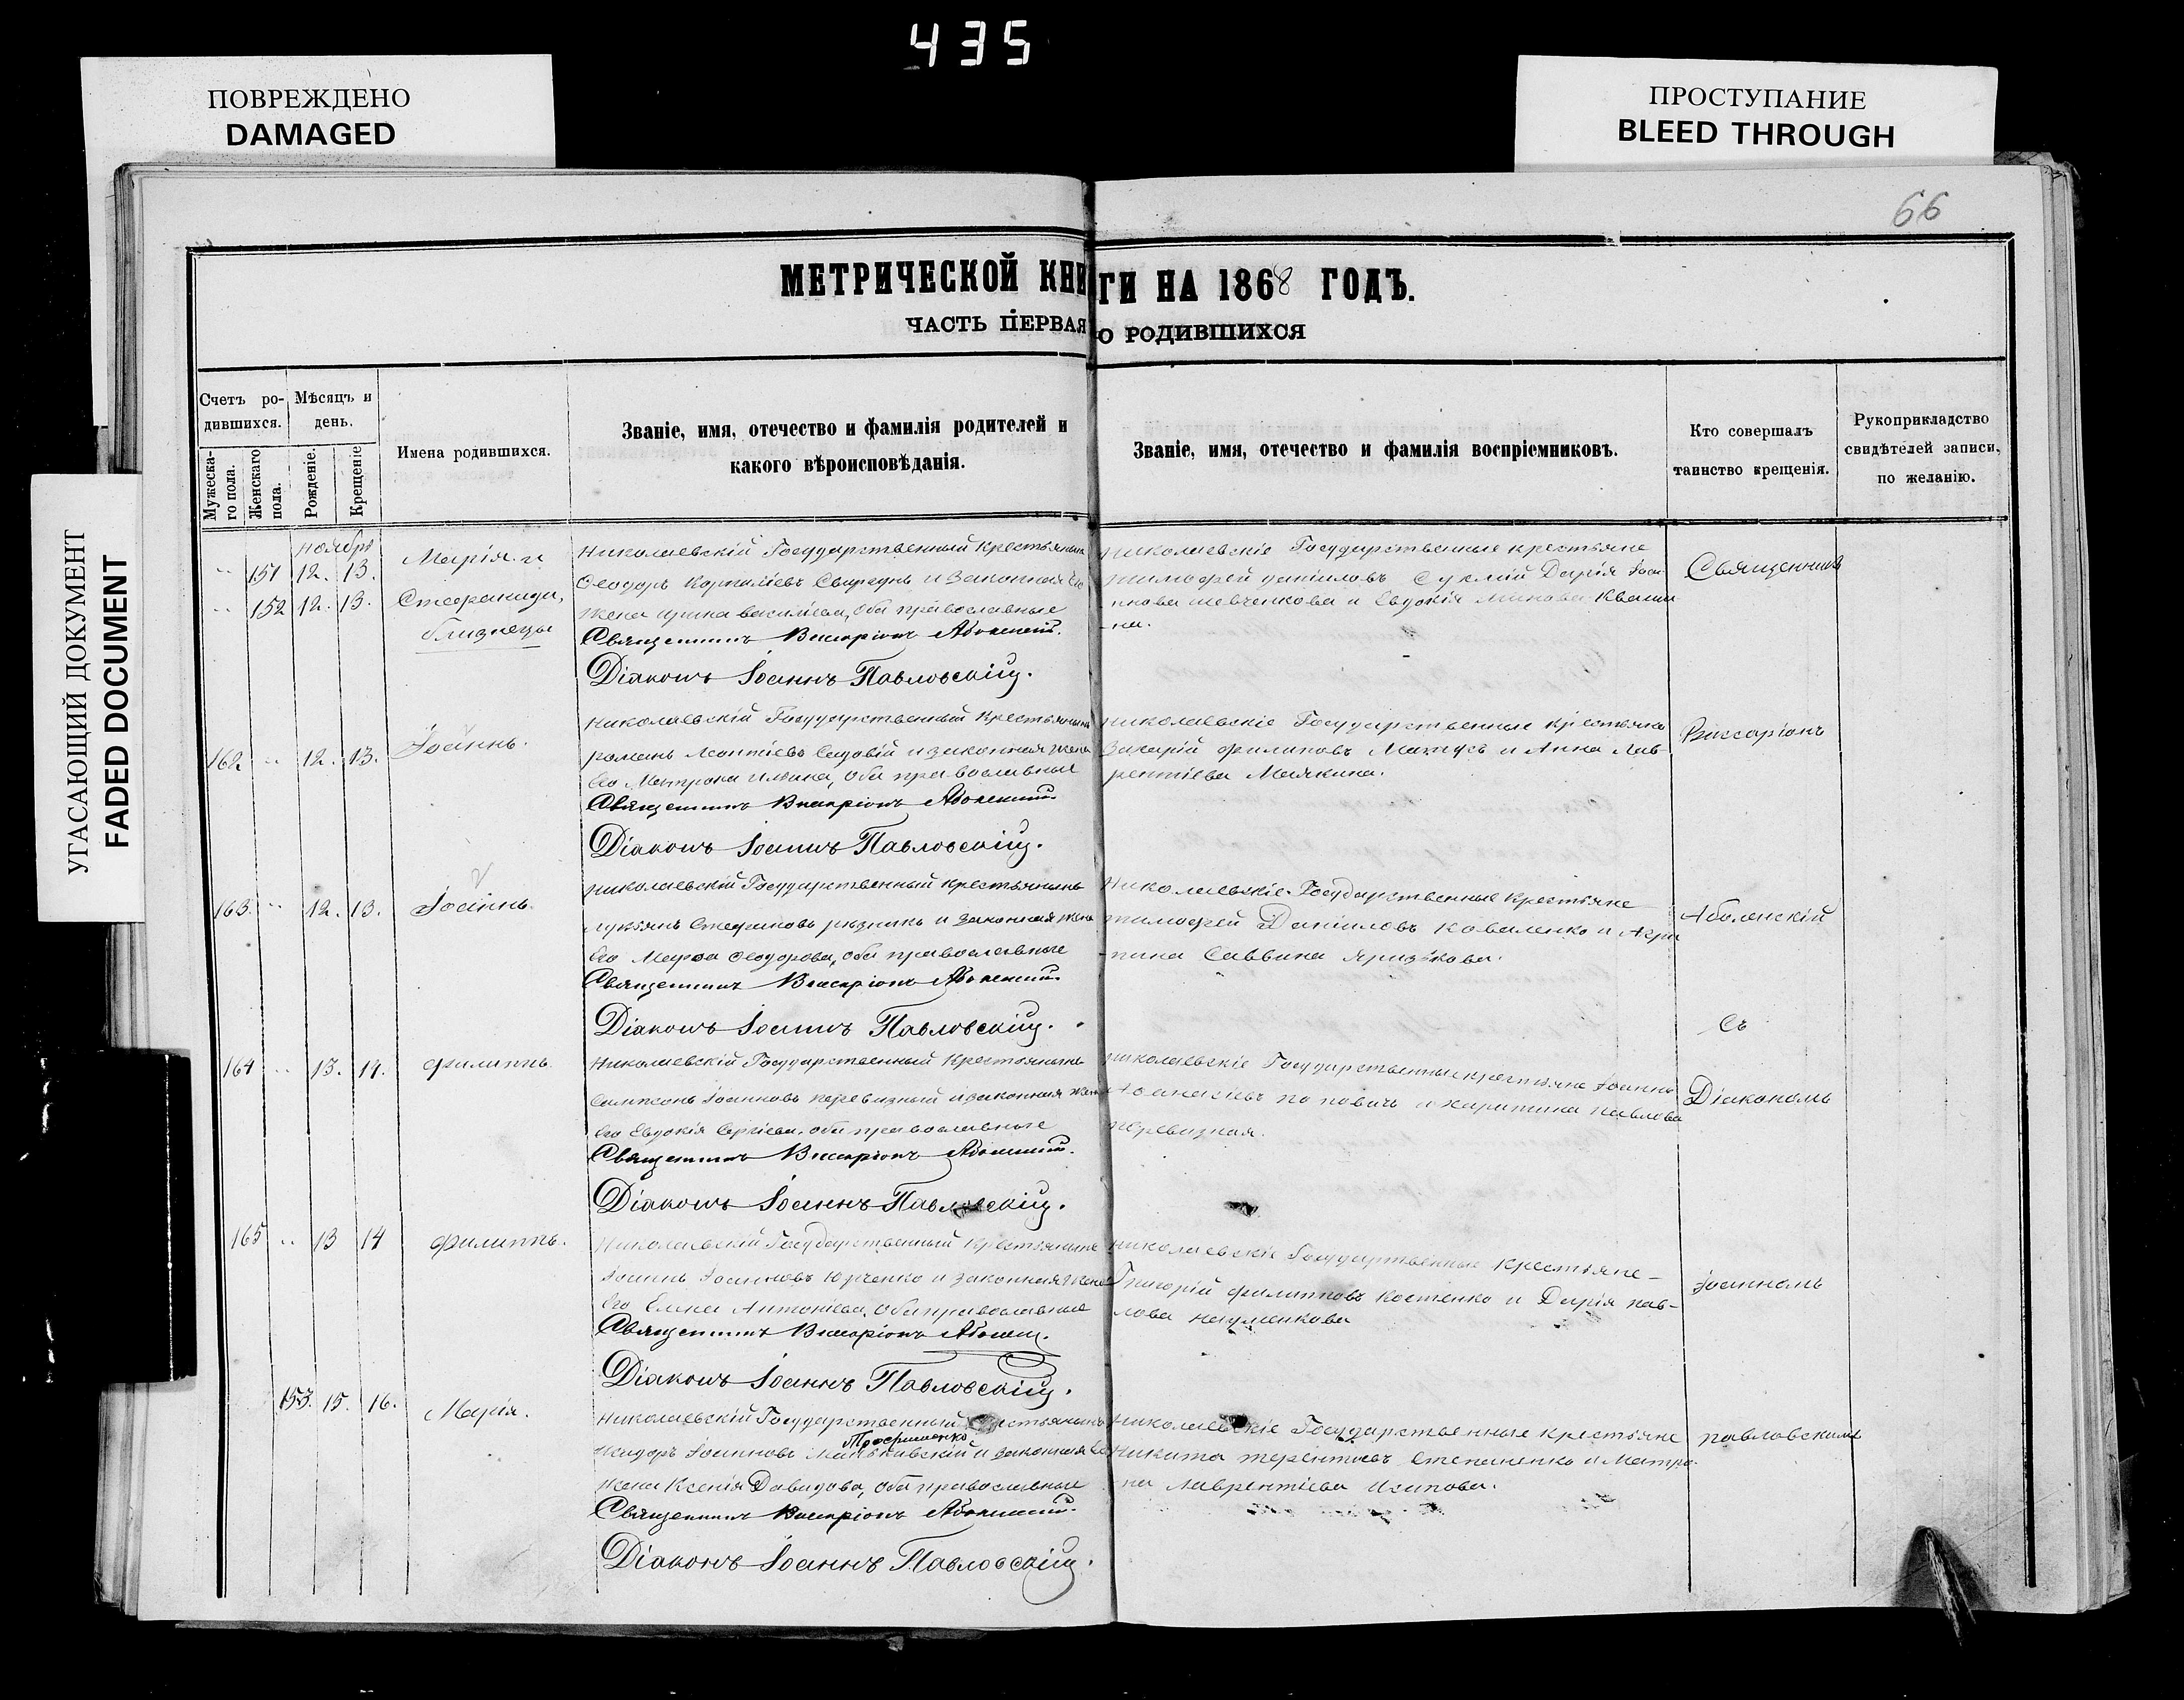 435
ПОВРЕЖДЕНО
DAMAGED
ПРОСТУПАНИЕ
BLEED THROUGH
УГАСАЮЩИЙ ДОКУМЕНТ
FADED DOCUMENT
66
МЕТРИЧЕСКОЙ КНИГИ НА 1868 ГОДЪ.
ЧАСТЬ ПЕРВАЯ О РОДИВШИХСЯ
Счетъ ро-
дившихся.
Мужеска-
го пола.
Женскаго
пола.
Мѣсяцъ и
день.
Рожденіе.
Крещеніе
Имена родившихся.
Званіе, имя, отечество и фамилія родителей и
какого вѣроисповѣданія.
Званіе, имя, отечество и фамилія воспріемниковъ.
Кто совершалъ
таинство крещенія.
Рукоприкладство
свидѣтелей записи,
по желанію.
ноября
151 12. 13.
152 12. 13.
Марія и
Стефанида,
близнецы
Николаевскій Государственный крестьянинъ
Ѳеодоръ Корниліевъ и законная его
жена Ирина Василіева, оба православные
Священникъ Виссаріонъ Аболенскій.
Діаконъ Іоаннъ Павловскій.
Николаевскіе Государственные крестьяне
Тимофей Даніиловъ Дарія Іоан-
нова Шевченкова и Евдокія Кваши-
на.
Священникъ
162 " 12. 13.
Іоаннъ.
Николаевскій Государственный крестьянинъ
романъ Леонтіевъ Садовій и законная жена
Его Матрона Ильина, оба православные
Священникъ Виссаріонъ Аболенскій.
Діаконъ Іоаннъ Павловскій.
николаевскіе Государственные крестьяне
Захарій Филиповъ и Анна Лав-
рентіева Маякина.
Виссаріонъ
163. " 12. 13.
Іоаннъ.
николаевскій Государственный крестьянинъ
лукьянъ Стефановъ резникъ и законная жена
Его Марфа Ѳеодорова, оба православные
Священникъ Виссаріонъ Аболенскій.
Діаконъ Іоаннъ Павловскій.
Николаевскіе Государственные крестьяне
тимофей Даніиловъ Коваленко и Агри-
пина Саввина
Аболенскій
съ
164 " 13. 14.
Филиппъ.
Николаевскій Государственный Крестьянинъ
Сампсонъ Іоанновъ перевизный и законная жена
Его Евдокія Сергіева, оба православные
Священникъ Виссаріонъ Аболенскій.
Діаконъ Іоаннъ Павловскій.
николаевскіе Государственные крестьяне Іоаннъ
Аѳанасіевъ поповичъ и харитина павлова
перевизная.
Діакономъ
165 " 13 14
Филиппъ.
Николаевскій Государственный Крестьянинъ
Іоаннъ Іоанновъ Юрченко и законная жена
Его Елена Антоніева, оба православные
Священникъ Виссаріонъ Аболенск.
Діаконъ Іоаннъ Павловскій.
николаевскіе Государственные Крестьяне
Григорій филипповъ костенко и Дарія пав-
лова науменкова
Іоанномъ
153. 15. 16.
Марія.
Николаевскій Государственный крестьянинъ
Трофименко
Исидоръ Іоанновъ Маньковскій и законная Его
жена Ксенія Давидова, оба православные
Священникъ Виссаріонъ Аболенскій.
Діаконъ Іоаннъ Павловскій.
Николаевскіе Государственные крестьяне
Никита терентіевъ Степаненко и Матро-
на Лаврентіева
павловскимъ